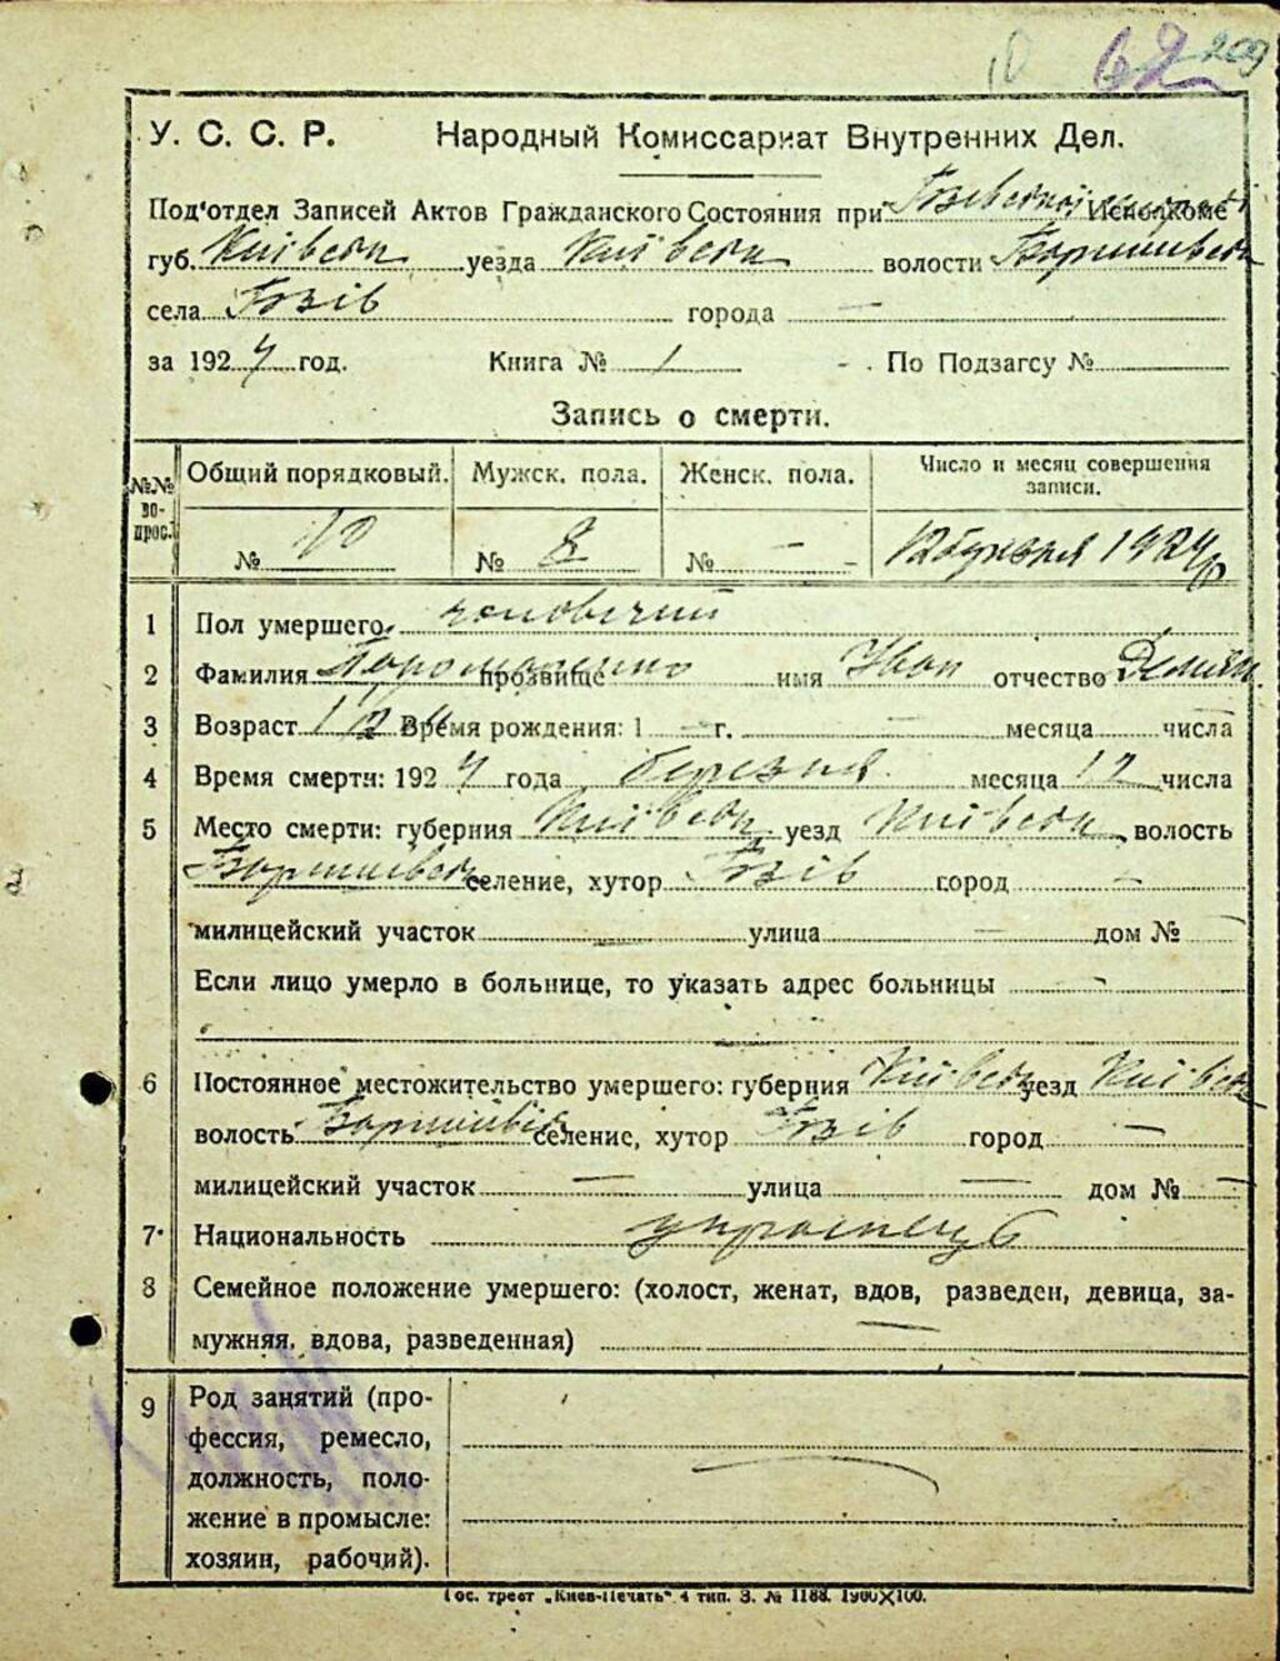 62 209
У. С. С. Р. Народный Комиссариат Внутренних Дел.
Под'отдел Записей Актов Гражданского Состояния при Исполкоме
губ. Київськ уезда Київськ волости
села Гозів города —
за 1924 год. Книга № 1 По Подзагсу №
Запись о смерти.
№№ вопрос. Общий порядковый. Мужск. пола. Женск. пола. Число и месяц совершения записи.
№ 10 № 8 № —
1 Пол умершего чоловічий
2 Фамилия прозвище имя Иван отчество Демьян.
3 Возраст Время рождения: 1 — г. — месяца — числа
4 Время смерти: 1924 года березня месяца 12 числа
5 Место смерти: губерния Київськ уезд Київськ волость
селение, хутор Гозів город —
милицейский участок — улица — дом № —
Если лицо умерло в больнице, то указать адрес больницы —
6 Постоянное местожительство умершего: губерния Київськ уезд Київськ
волость селение, хутор Гозів город —
милицейский участок — улица — дом № —
7 Национальность українець
8 Семейное положение умершего: (холост, женат, вдов, разведен, девица, за-
мужняя, вдова, разведенная) —
9 Род занятий (про-
фессия, ремесло,
должность, поло-
жение в промысле:
хозяин, рабочий).
Гос. трест „Киев-Печать" 4 тип. З. № 1188. 1900×100.